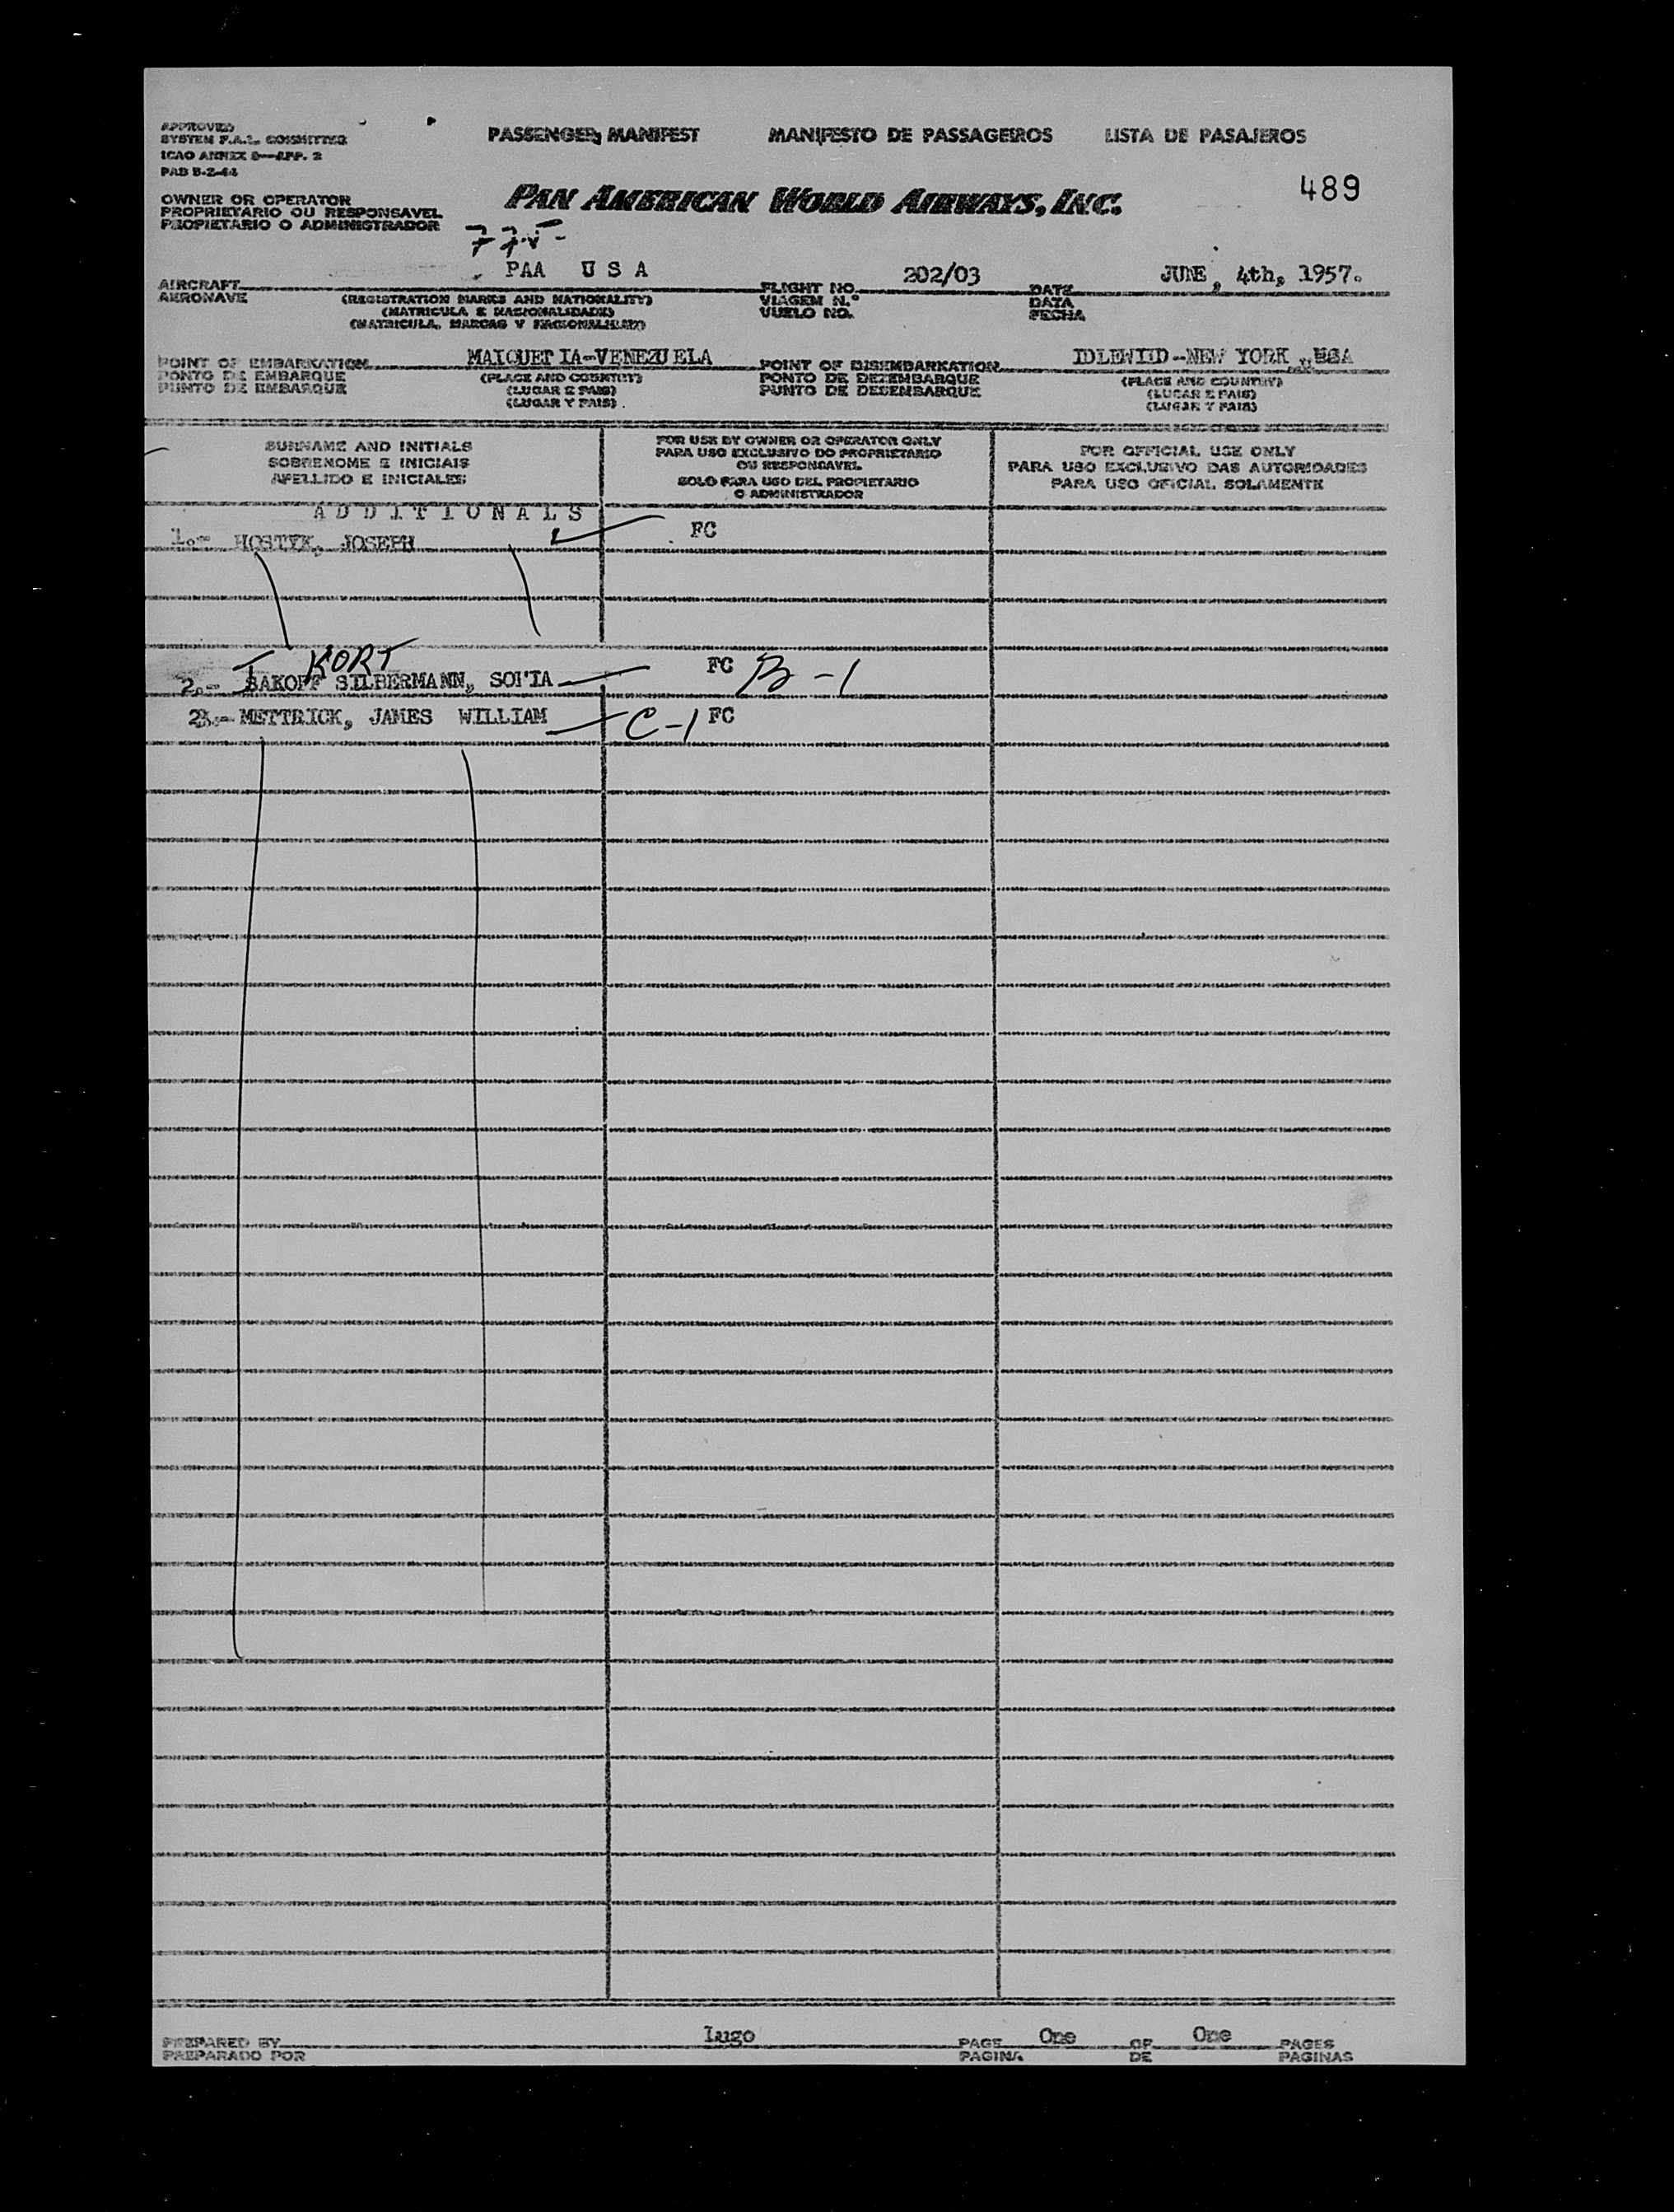 APPROVED
SYSTEM F.A.L. COMMITTEE
ICAO ANNEX 9—APP. 2
PAD B-Z-44
PASSENGER MANIFEST MANIFESTO DE PASSAGEIROS LISTA DE PASAJEROS
PAN AMERICAN WORLD AIRWAYS, INC.
489
OWNER OR OPERATOR
PROPRIETARIO OU RESPONSAVEL
PROPIETARIO O ADMINISTRADOR
775-
AIRCRAFT PAA U S A FLIGHT NO. 202/03 DATE JUNE, 4th, 1957.
AERONAVE (REGISTRATION MARKS AND NATIONALITY) VIAGEM N.° DATA
(MATRICULA E NACIONALIDADE) VUELO NO. FECHA
(MATRICULA, MARCAS Y NACIONALIDAD)
POINT OF EMBARKATION MAIQUETIA-VENEZUELA POINT OF DISEMBARKATION IDLEWILD--NEW YORK, USA
PONTO DE EMBARQUE (PLACE AND COUNTRY) PONTO DE DEZEMBARQUE (PLACE AND COUNTRY)
PUNTO DE EMBARQUE (LUGAR E PAIS) PUNTO DE DESEMBARQUE (LUGAR E PAIS)
(LUGAR Y PAIS) (LUGAR Y PAIS)
SURNAME AND INITIALS
SOBRENOME E INICIAIS
APELLIDO E INICIALES
FOR USE BY OWNER OR OPERATOR ONLY
PARA USO EXCLUSIVO DO PROPRIETARIO
OU RESPONSAVEL
SOLO PARA USO DEL PROPIETARIO
O ADMINISTRADOR
FOR OFFICIAL USE ONLY
PARA USO EXCLUSIVO DAS AUTORIDADES
PARA USO OFICIAL SOLAMENTE
A D D I T I O N A L S
1.- HOSTYK, JOSEPH FC
I KORT
2.- SAKOFF SILBERMANN, SONIA FC B-1
METTRICK, JAMES WILLIAM C-1 FC
PREPARED BY Lugo PAGE One OF One PAGES
PREPARADO POR PAGINA DE PAGINAS